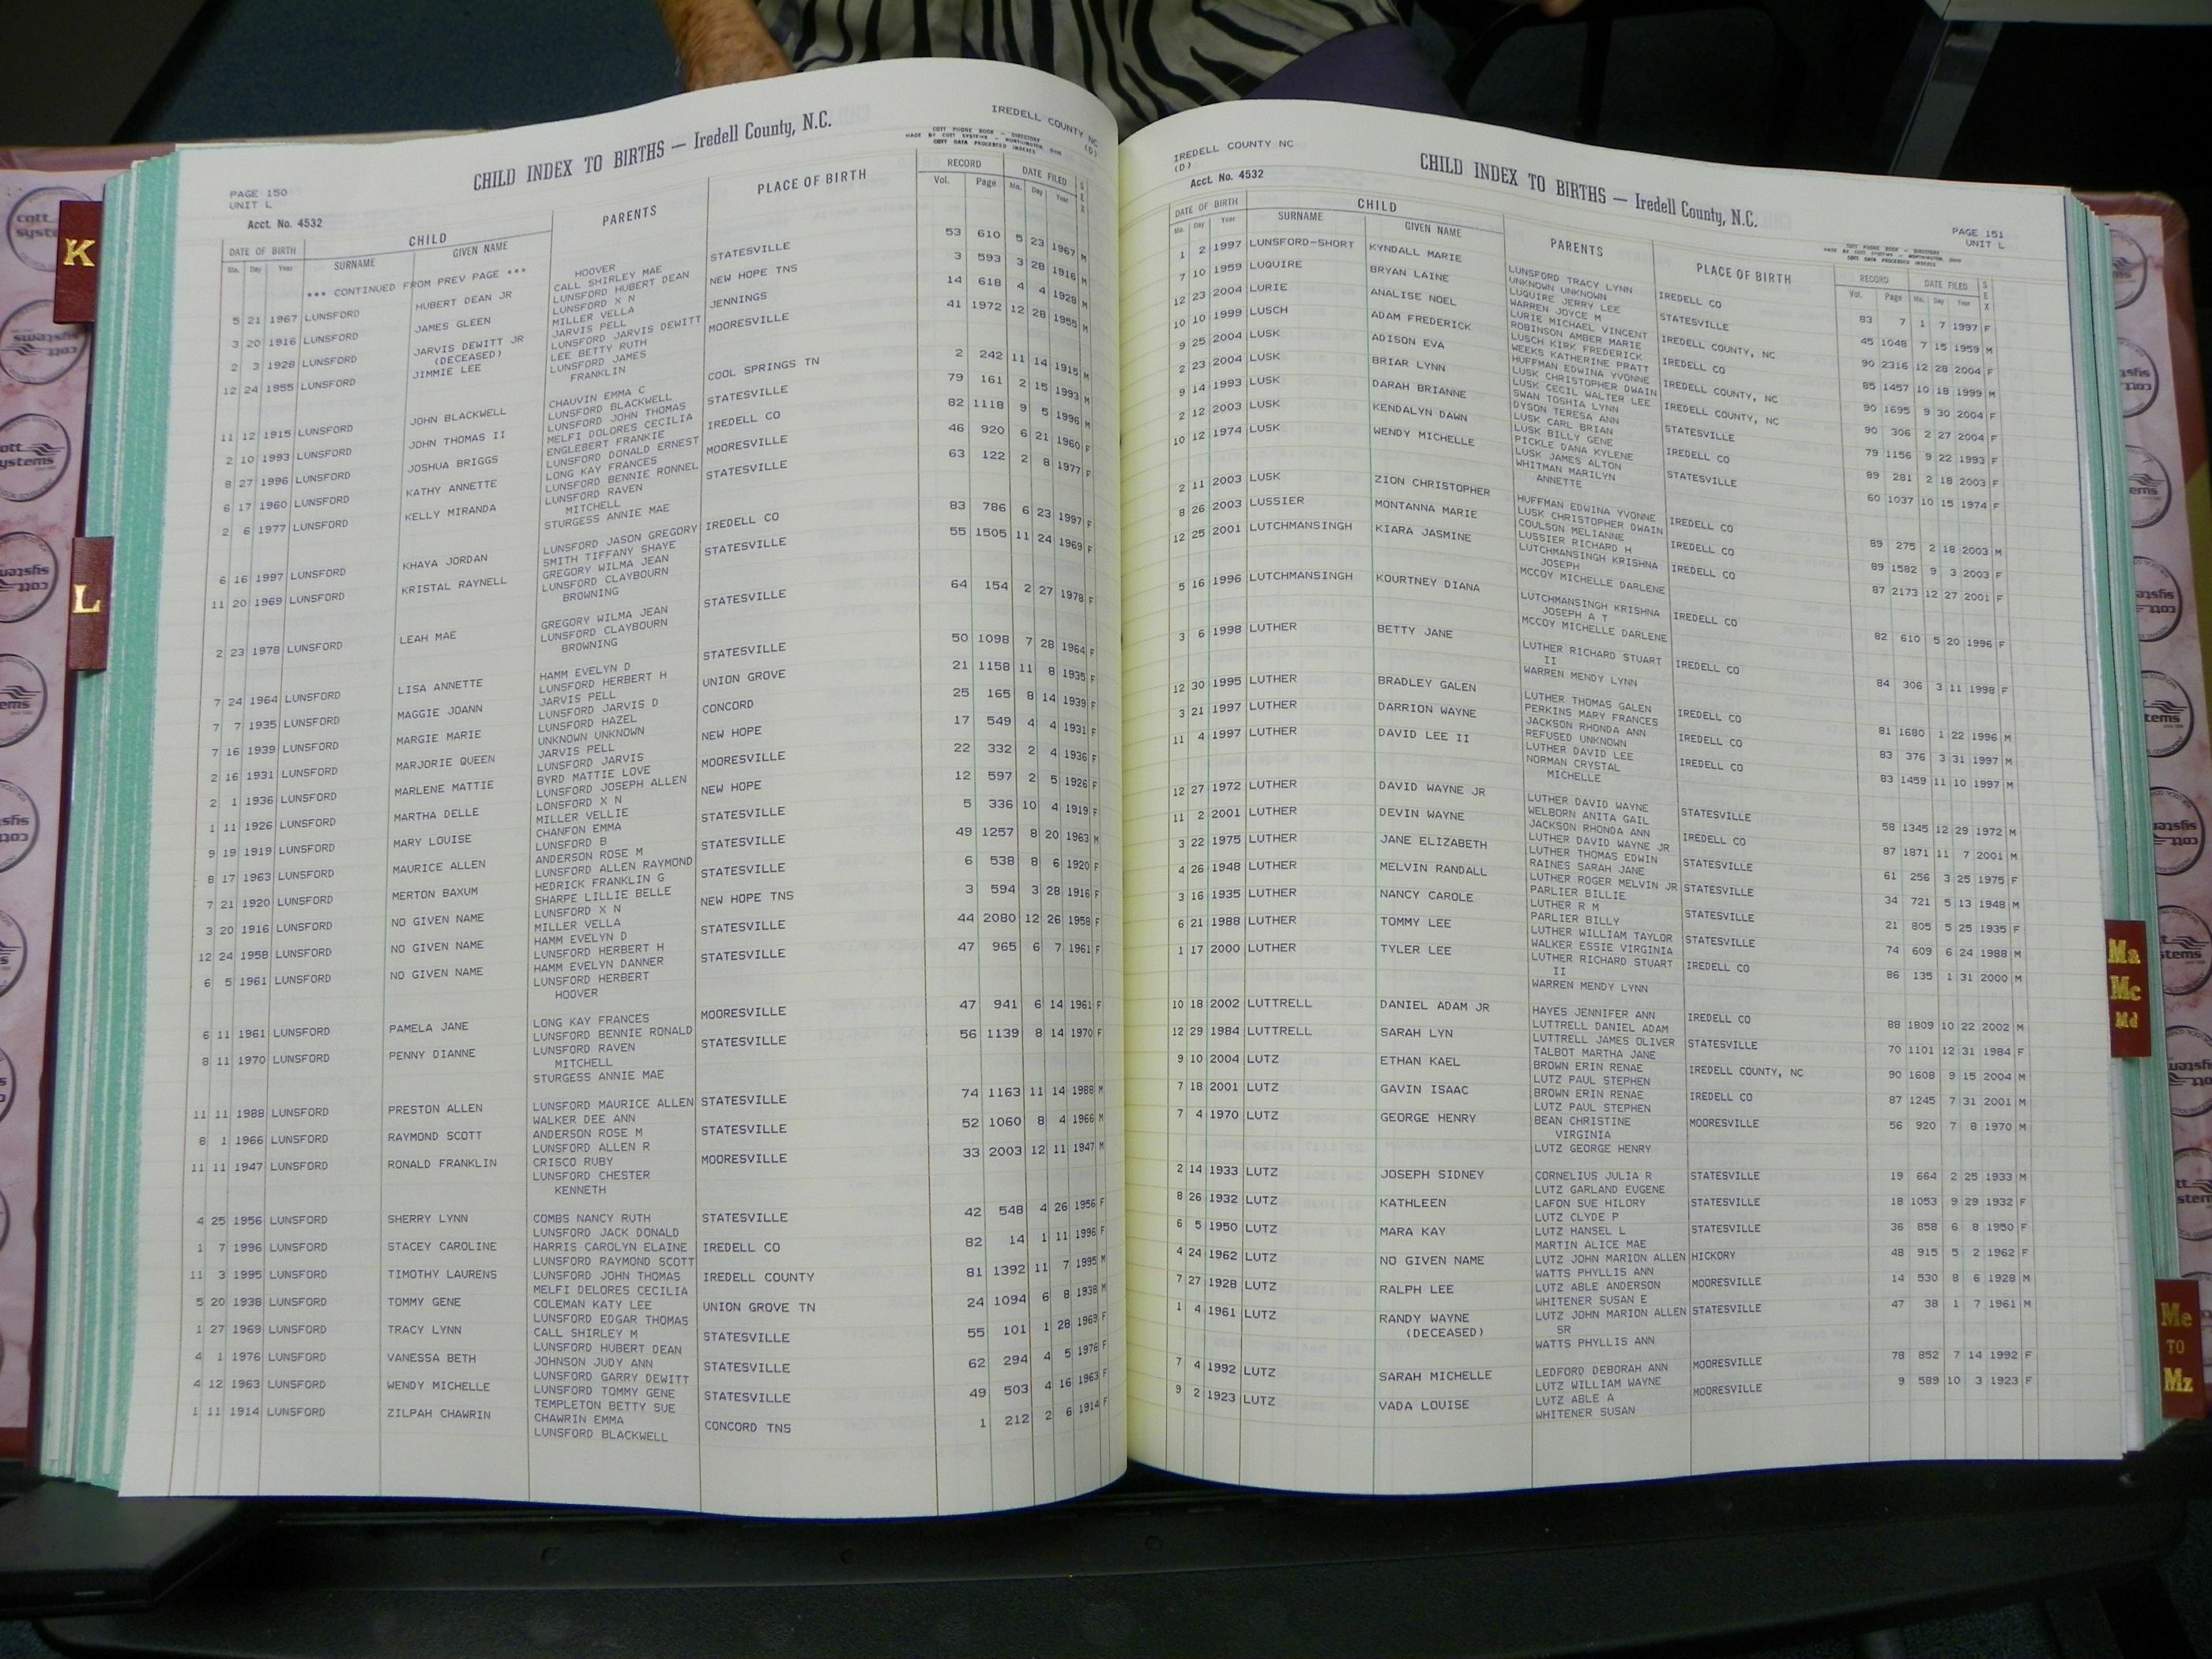 IREDELL COUNTY NC
(D)
CHILD INDEX TO BIRTHS — Iredell County, N.C.
COTT PHONE BOOK - DIRECTORY
MADE BY COTT SYSTEMS - WORTHINGTON, OHIO
COTT DATA PROCESSED INDEXES
PAGE 150
UNIT L
Acct. No. 4532
DATE OF BIRTH CHILD PARENTS PLACE OF BIRTH RECORD DATE FILED SEX
Mo. Day Year SURNAME GIVEN NAME Vol. Page Mo. Day Year
*** CONTINUED FROM PREV PAGE ***
HOOVER
5 21 1967 LUNSFORD HUBERT DEAN JR CALL SHIRLEY MAE STATESVILLE 53 610 5 23 1967 M
LUNSFORD HUBERT DEAN
3 20 1916 LUNSFORD JAMES GLEEN LUNSFORD X N NEW HOPE TNS 3 593 3 28 1916 M
MILLER VELLA
2 3 1928 LUNSFORD JARVIS DEWITT JR JARVIS PELL JENNINGS 14 618 4 4 1928 M
(DECEASED) LUNSFORD JARVIS DEWITT
12 24 1955 LUNSFORD JIMMIE LEE LEE BETTY RUTH MOORESVILLE 41 1972 12 28 1955 M
LUNSFORD JAMES
FRANKLIN
11 12 1915 LUNSFORD JOHN BLACKWELL CHAUVIN EMMA C COOL SPRINGS TN 2 242 11 14 1915 M
LUNSFORD BLACKWELL
2 10 1993 LUNSFORD JOHN THOMAS II LUNSFORD JOHN THOMAS STATESVILLE 79 161 2 15 1993 M
MELFI DOLORES CECILIA
8 27 1996 LUNSFORD JOSHUA BRIGGS ENGLEBERT FRANKIE IREDELL CO 82 1118 9 5 1996 M
LUNSFORD DONALD ERNEST
6 17 1960 LUNSFORD KATHY ANNETTE LONG KAY FRANCES MOORESVILLE 46 920 6 21 1960 F
LUNSFORD BENNIE RONNEL
2 6 1977 LUNSFORD KELLY MIRANDA LUNSFORD RAVEN STATESVILLE 63 122 2 8 1977 F
MITCHELL
STURGESS ANNIE MAE
6 16 1997 LUNSFORD KHAYA JORDAN LUNSFORD JASON GREGORY IREDELL CO 83 786 6 23 1997 F
SMITH TIFFANY SHAYE
11 20 1969 LUNSFORD KRISTAL RAYNELL GREGORY WILMA JEAN STATESVILLE 55 1505 11 24 1969 F
LUNSFORD CLAYBOURN
BROWNING
2 23 1978 LUNSFORD LEAH MAE GREGORY WILMA JEAN STATESVILLE 64 154 2 27 1978 F
LUNSFORD CLAYBOURN
BROWNING
7 24 1964 LUNSFORD LISA ANNETTE HAMM EVELYN D STATESVILLE 50 1098 7 28 1964 F
LUNSFORD HERBERT H
7 7 1935 LUNSFORD MAGGIE JOANN JARVIS PELL UNION GROVE 21 1158 11 8 1935 F
LUNSFORD JARVIS D
7 16 1939 LUNSFORD MARGIE MARIE LUNSFORD HAZEL CONCORD 25 165 8 14 1939 F
UNKNOWN UNKNOWN
2 16 1931 LUNSFORD MARJORIE QUEEN JARVIS PELL NEW HOPE 17 549 4 4 1931 F
LUNSFORD JARVIS
2 1 1936 LUNSFORD MARLENE MATTIE BYRD MATTIE LOVE MOORESVILLE 22 332 2 4 1936 F
LUNSFORD JOSEPH ALLEN
1 11 1926 LUNSFORD MARTHA DELLE LONSFORD X N NEW HOPE 12 597 2 5 1926 F
MILLER VELLIE
9 19 1919 LUNSFORD MARY LOUISE CHANFON EMMA STATESVILLE 5 336 10 4 1919 F
LUNSFORD B
8 17 1963 LUNSFORD MAURICE ALLEN ANDERSON ROSE M STATESVILLE 49 1257 8 20 1963 M
LUNSFORD ALLEN RAYMOND
7 21 1920 LUNSFORD MERTON BAXUM HEDRICK FRANKLIN G STATESVILLE 6 538 8 6 1920 F
SHARPE LILLIE BELLE
3 20 1916 LUNSFORD NO GIVEN NAME LUNSFORD X N NEW HOPE TNS 3 594 3 28 1916 F
MILLER VELLA
12 24 1958 LUNSFORD NO GIVEN NAME HAMM EVELYN D STATESVILLE 44 2080 12 26 1958 F
LUNSFORD HERBERT H
6 5 1961 LUNSFORD NO GIVEN NAME HAMM EVELYN DANNER STATESVILLE 47 965 6 7 1961 F
LUNSFORD HERBERT
HOOVER
6 11 1961 LUNSFORD PAMELA JANE LONG KAY FRANCES MOORESVILLE 47 941 6 14 1961 F
LUNSFORD BENNIE RONALD
8 11 1970 LUNSFORD PENNY DIANNE LUNSFORD RAVEN STATESVILLE 56 1139 8 14 1970 F
MITCHELL
STURGESS ANNIE MAE
11 11 1988 LUNSFORD PRESTON ALLEN LUNSFORD MAURICE ALLEN STATESVILLE 74 1163 11 14 1988 M
WALKER DEE ANN
8 1 1966 LUNSFORD RAYMOND SCOTT ANDERSON ROSE M STATESVILLE 52 1060 8 4 1966 M
LUNSFORD ALLEN R
11 11 1947 LUNSFORD RONALD FRANKLIN CRISCO RUBY MOORESVILLE 33 2003 12 11 1947 M
LUNSFORD CHESTER
KENNETH
4 25 1956 LUNSFORD SHERRY LYNN COMBS NANCY RUTH STATESVILLE 42 548 4 26 1956 F
LUNSFORD JACK DONALD
1 7 1996 LUNSFORD STACEY CAROLINE HARRIS CAROLYN ELAINE IREDELL CO 82 14 1 11 1996 F
LUNSFORD RAYMOND SCOTT
11 3 1995 LUNSFORD TIMOTHY LAURENS LUNSFORD JOHN THOMAS IREDELL COUNTY 81 1392 11 7 1995 M
MELFI DELORES CECILIA
5 20 1938 LUNSFORD TOMMY GENE COLEMAN KATY LEE UNION GROVE TN 24 1094 6 8 1938 M
LUNSFORD EDGAR THOMAS
1 27 1969 LUNSFORD TRACY LYNN CALL SHIRLEY M STATESVILLE 55 101 1 28 1969 F
LUNSFORD HUBERT DEAN
4 1 1976 LUNSFORD VANESSA BETH JOHNSON JUDY ANN STATESVILLE 62 294 4 5 1976 F
LUNSFORD GARRY DEWITT
4 12 1963 LUNSFORD WENDY MICHELLE LUNSFORD TOMMY GENE STATESVILLE 49 503 4 16 1963 F
TEMPLETON BETTY SUE
1 11 1914 LUNSFORD ZILPAH CHAWRIN CHAWRIN EMMA CONCORD TNS 1 212 2 6 1914 F
LUNSFORD BLACKWELL
IREDELL COUNTY NC
(D)
Acct. No. 4532
CHILD INDEX TO BIRTHS — Iredell County, N.C.
PAGE 151
UNIT L
COTT PHONE BOOK - DIRECTORY
MADE BY COTT SYSTEMS - WORTHINGTON, OHIO
COTT DATA PROCESSED INDEXES
DATE OF BIRTH CHILD PARENTS PLACE OF BIRTH RECORD DATE FILED SEX
Mo. Day Year SURNAME GIVEN NAME Vol. Page Mo. Day Year
1 2 1997 LUNSFORD-SHORT KYNDALL MARIE LUNSFORD TRACY LYNN IREDELL CO 83 7 1 7 1997 F
UNKNOWN UNKNOWN
7 10 1959 LUQUIRE BRYAN LAINE LUQUIRE JERRY LEE STATESVILLE 45 1048 7 15 1959 M
WARREN JOYCE M
12 23 2004 LURIE ANALISE NOEL LURIE MICHAEL VINCENT IREDELL COUNTY, NC 90 2316 12 28 2004 F
ROBINSON AMBER MARIE
10 10 1999 LUSCH ADAM FREDERICK LUSCH KIRK FREDERICK IREDELL CO 85 1457 10 18 1999 M
WEEKS KATHERINE PRATT
9 25 2004 LUSK ADISON EVA HUFFMAN EDWINA YVONNE IREDELL COUNTY, NC 90 1695 9 30 2004 F
LUSK CHRISTOPHER DWAIN
2 23 2004 LUSK BRIAR LYNN LUSK CECIL WALTER LEE IREDELL COUNTY, NC 90 306 2 27 2004 F
SWAN TOSHIA LYNN
9 14 1993 LUSK DARAH BRIANNE DYSON TERESA ANN STATESVILLE 79 1156 9 22 1993 F
LUSK CARL BRIAN
2 12 2003 LUSK KENDALYN DAWN LUSK BILLY GENE IREDELL CO 89 281 2 18 2003 F
PICKLE DANA KYLENE
10 12 1974 LUSK WENDY MICHELLE LUSK JAMES ALTON STATESVILLE 60 1037 10 15 1974 F
WHITMAN MARILYN
ANNETTE
2 11 2003 LUSK ZION CHRISTOPHER HUFFMAN EDWINA YVONNE IREDELL CO 89 275 2 18 2003 M
LUSK CHRISTOPHER DWAIN
8 26 2003 LUSSIER MONTANNA MARIE COULSON MELIANNE IREDELL CO 89 1582 9 3 2003 F
LUSSIER RICHARD H
12 25 2001 LUTCHMANSINGH KIARA JASMINE LUTCHMANSINGH KRISHNA IREDELL CO 87 2173 12 27 2001 F
JOSEPH
MCCOY MICHELLE DARLENE
5 16 1996 LUTCHMANSINGH KOURTNEY DIANA LUTCHMANSINGH KRISHNA IREDELL CO 82 610 5 20 1996 F
JOSEPH A T
MCCOY MICHELLE DARLENE
3 6 1998 LUTHER BETTY JANE LUTHER RICHARD STUART IREDELL CO 84 306 3 11 1998 F
II
WARREN MENDY LYNN
12 30 1995 LUTHER BRADLEY GALEN LUTHER THOMAS GALEN IREDELL CO 81 1680 1 22 1996 M
PERKINS MARY FRANCES
3 21 1997 LUTHER DARRION WAYNE JACKSON RHONDA ANN IREDELL CO 83 376 3 31 1997 M
REFUSED UNKNOWN
11 4 1997 LUTHER DAVID LEE II LUTHER DAVID LEE IREDELL CO 83 1459 11 10 1997 M
NORMAN CRYSTAL
MICHELLE
12 27 1972 LUTHER DAVID WAYNE JR LUTHER DAVID WAYNE STATESVILLE 58 1345 12 29 1972 M
WELBORN ANITA GAIL
11 2 2001 LUTHER DEVIN WAYNE JACKSON RHONDA ANN IREDELL CO 87 1871 11 7 2001 M
LUTHER DAVID WAYNE JR
3 22 1975 LUTHER JANE ELIZABETH LUTHER THOMAS EDWIN STATESVILLE 61 256 3 25 1975 F
RAINES SARAH JANE
4 26 1948 LUTHER MELVIN RANDALL LUTHER ROGER MELVIN JR STATESVILLE 34 721 5 13 1948 M
PARLIER BILLIE
3 16 1935 LUTHER NANCY CAROLE LUTHER R M STATESVILLE 21 805 5 25 1935 F
PARLIER BILLY
6 21 1988 LUTHER TOMMY LEE LUTHER WILLIAM TAYLOR STATESVILLE 74 609 6 24 1988 M
WALKER ESSIE VIRGINIA
1 17 2000 LUTHER TYLER LEE LUTHER RICHARD STUART IREDELL CO 86 135 1 31 2000 M
II
WARREN MENDY LYNN
10 18 2002 LUTTRELL DANIEL ADAM JR HAYES JENNIFER ANN IREDELL CO 88 1809 10 22 2002 M
LUTTRELL DANIEL ADAM
12 29 1984 LUTTRELL SARAH LYN LUTTRELL JAMES OLIVER STATESVILLE 70 1101 12 31 1984 F
TALBOT MARTHA JANE
9 10 2004 LUTZ ETHAN KAEL BROWN ERIN RENAE IREDELL COUNTY, NC 90 1608 9 15 2004 M
LUTZ PAUL STEPHEN
7 18 2001 LUTZ GAVIN ISAAC BROWN ERIN RENAE IREDELL CO 87 1245 7 31 2001 M
LUTZ PAUL STEPHEN
7 4 1970 LUTZ GEORGE HENRY BEAN CHRISTINE MOORESVILLE 56 920 7 8 1970 M
VIRGINIA
LUTZ GEORGE HENRY
2 14 1933 LUTZ JOSEPH SIDNEY CORNELIUS JULIA R STATESVILLE 19 664 2 25 1933 M
LUTZ GARLAND EUGENE
8 26 1932 LUTZ KATHLEEN LAFON SUE HILORY STATESVILLE 18 1053 9 29 1932 F
LUTZ CLYDE P
6 5 1950 LUTZ MARA KAY LUTZ HANSEL L STATESVILLE 36 858 6 8 1950 F
MARTIN ALICE MAE
4 24 1962 LUTZ NO GIVEN NAME LUTZ JOHN MARION ALLEN HICKORY 48 915 5 2 1962 F
WATTS PHYLLIS ANN
7 27 1928 LUTZ RALPH LEE LUTZ ABLE ANDERSON MOORESVILLE 14 530 8 6 1928 M
WHITENER SUSAN E
1 4 1961 LUTZ RANDY WAYNE LUTZ JOHN MARION ALLEN STATESVILLE 47 38 1 7 1961 M
(DECEASED) SR
WATTS PHYLLIS ANN
7 4 1992 LUTZ SARAH MICHELLE LEDFORD DEBORAH ANN MOORESVILLE 78 852 7 14 1992 F
LUTZ WILLIAM WAYNE
9 2 1923 LUTZ VADA LOUISE LUTZ ABLE A MOORESVILLE 9 589 10 3 1923 F
WHITENER SUSAN
K
L
Ma
Mc
Md
Me
TO
Mz
cott
systems